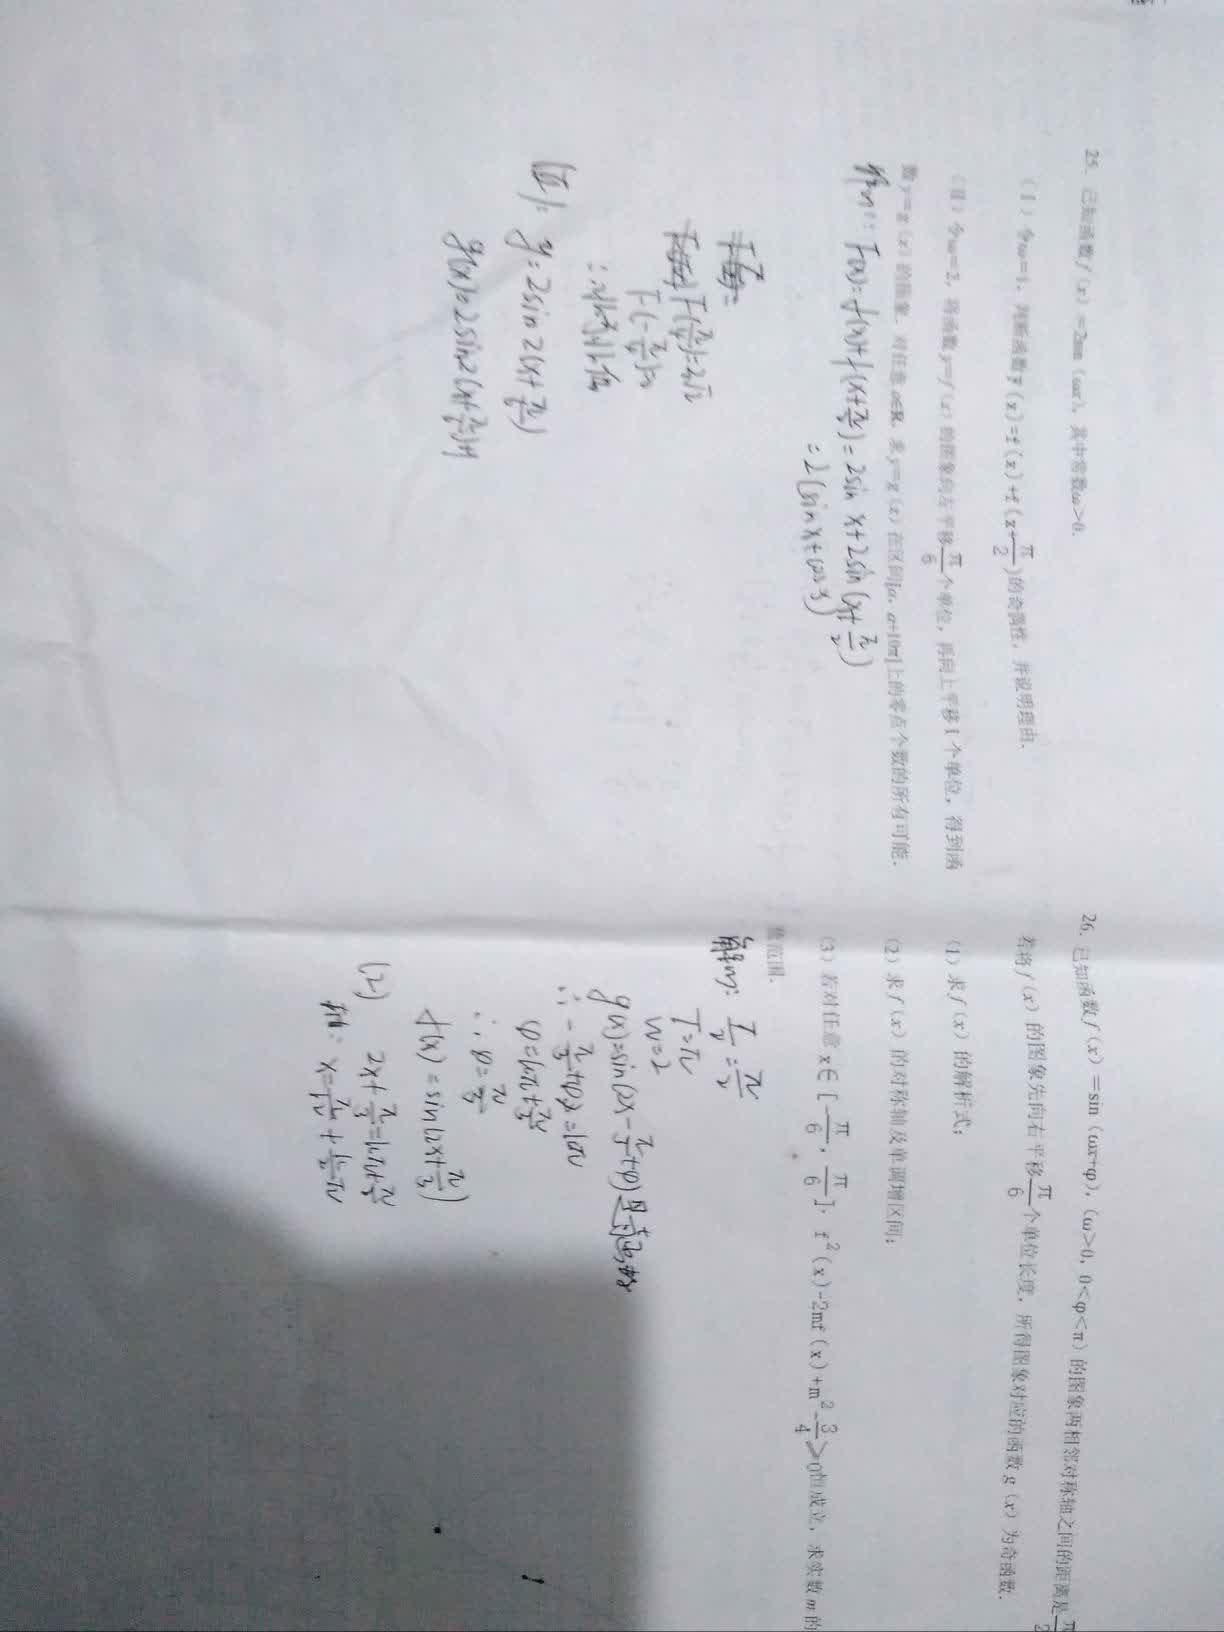 25. 已知函数f(x)=2sin(ωx),其中常数ω>0.
(Ⅰ)令ω=1,判断函数F(x)=f(x)+f(x+π/2)的奇偶性,并说明理由.
(Ⅱ)令ω=2,将函数y=f(x)的图象向左平移π/6个单位,再向上平移1个单位,得到函
数y=g(x)的图象.对任意a∈R,求y=g(x)在区间[a,a+10π]上的零点个数的所有可能.
F(x)=f(x)+f(x+π/2)=2sin x+2sin(x+π/2)
=2(sinx+cosx)
F(π/4)=2√2
F(-π/4)=0
∴ 非奇非偶
(Ⅱ): y=2sin2(x+π/6)
g(x)=2sin2(x+π/6)+1
26. 已知函数f(x)=sin(ωx+φ),(ω>0,0<φ<π)的图象两相邻对称轴之间的距离是π/2
若将f(x)的图象先向右平移π/6个单位长度,所得图象对应的函数g(x)为奇函数.
(1)求f(x)的解析式;
(2)求f(x)的对称轴及单调增区间;
(3)若对任意x∈[-π/6,π/6],f²(x)-2mf(x)+m²-3/4>0恒成立,求实数m的
值范围.
解(1): T/2=π/2
T=π
w=2
g(x)=sin(2x-π/3+φ)是奇函数
∴ -π/3+φ=kπ
φ=kπ+π/3
∴ φ=π/3
f(x)=sin(2x+π/3)
(2) 2x+π/3=kπ+π/2
轴: x=π/12+k/2π